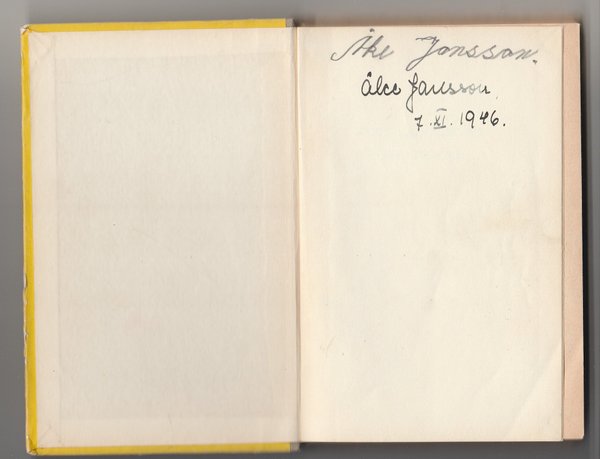 Åke Jonsson.
Åke Jansson
7.XI.1946.